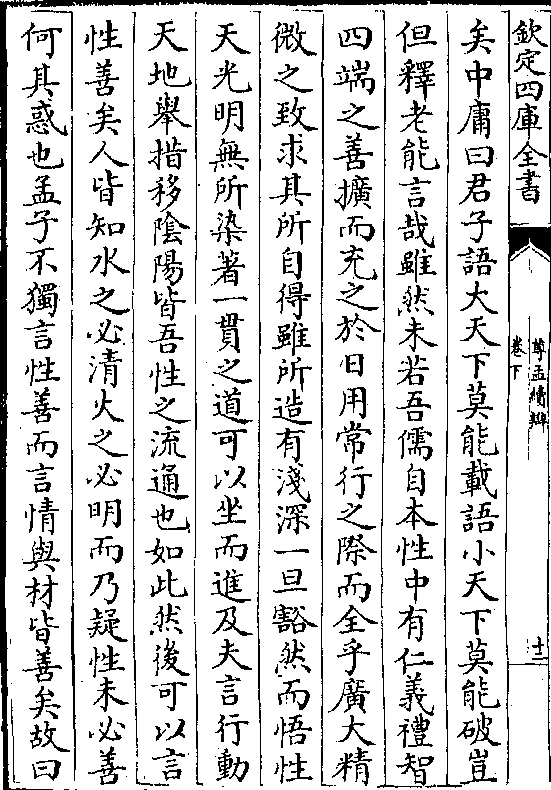 欽定四庫全書
尊孟續辨
卷下
十二
矣中庸曰君子語大天下莫能載語小天下莫能破豈
但釋老能言哉雖然未若吾儒自本性中有仁義禮智
四端之善擴而充之於日用常行之際而全乎廣大精
微之致求其所自得雖所造有淺深一旦豁然而悟性
天光明無所染著一貫之道可以坐而進及夫言行動
天地舉措移陰陽皆吾性之流通也如此然後可以言
性善矣人皆知水之必清火之必明而乃疑性未必善
何其惑也孟子不獨言性善而言情與材皆善矣故曰